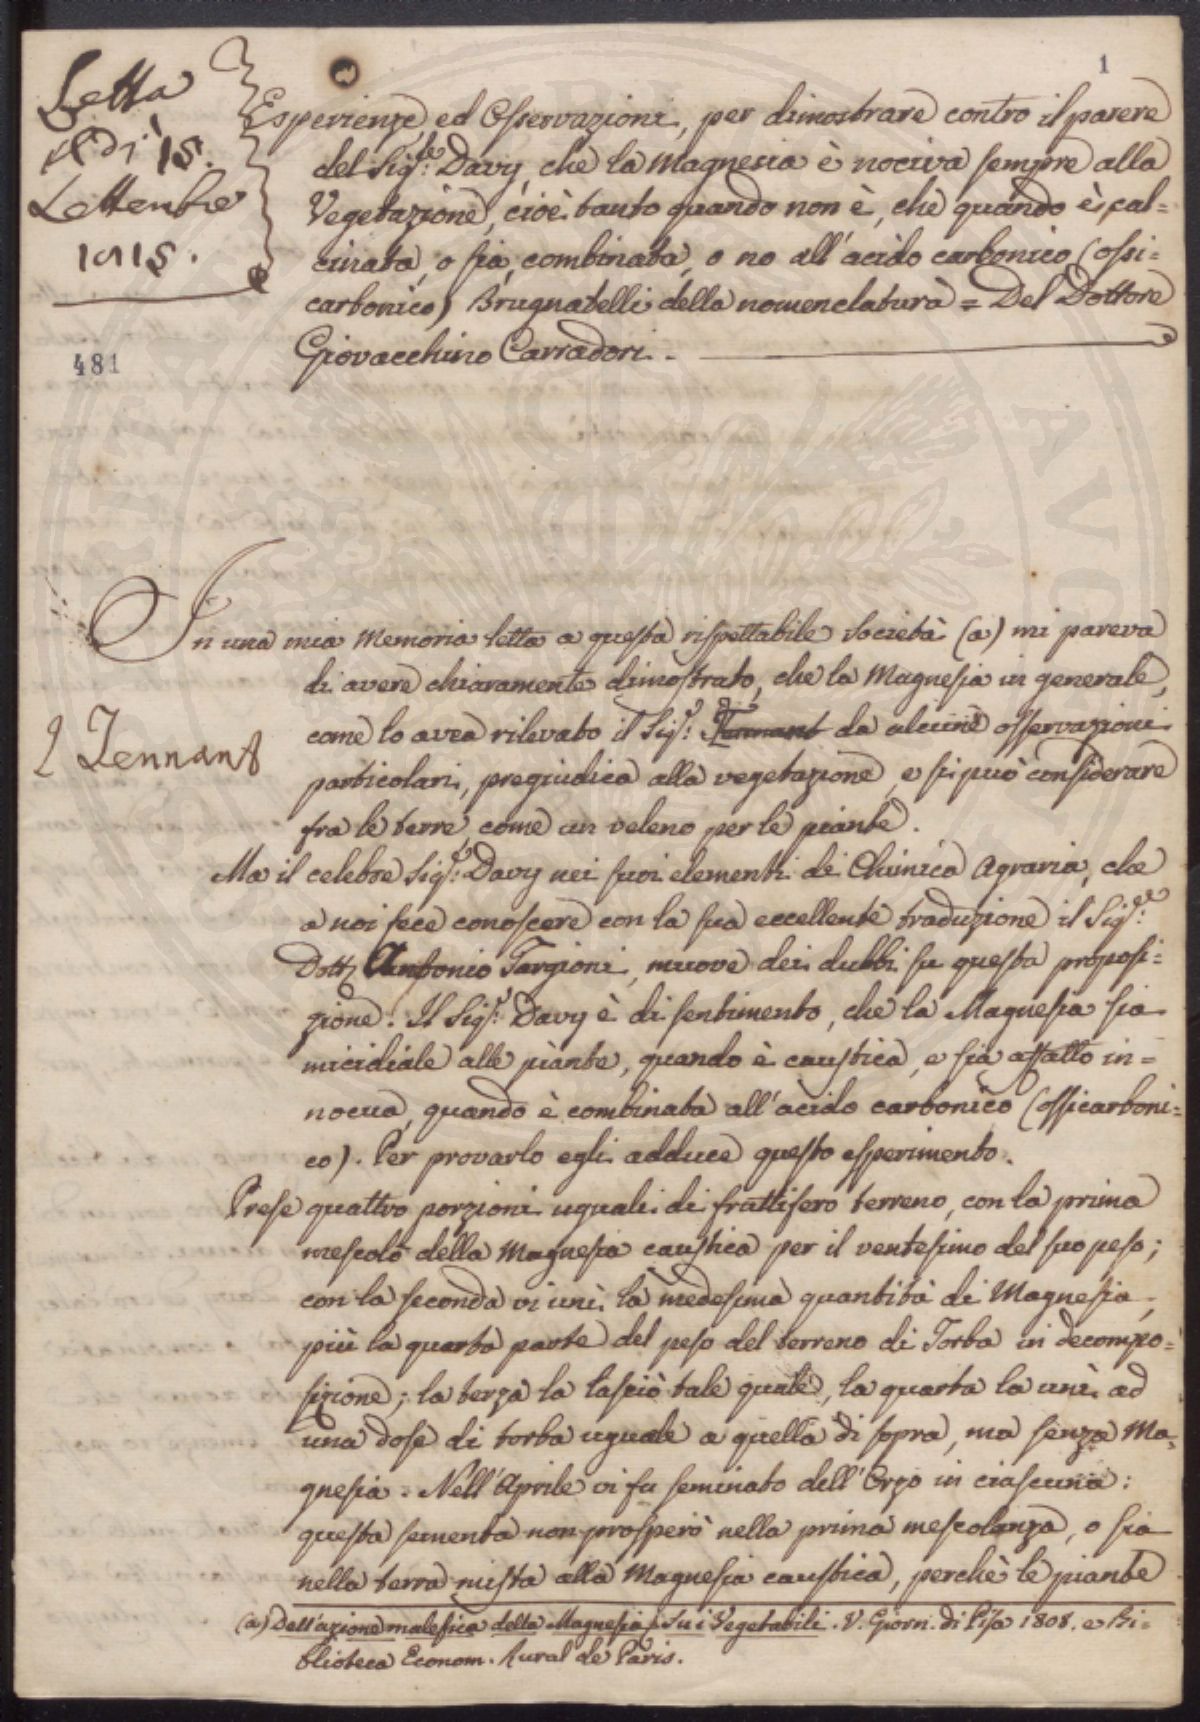 1
Letta
il dì 15.
Settembre
1815.
481
Esperienze ed Osservazioni, per dimostrare contro il parere
del Sig.re Davy, che la Magnesia è nociva sempre alla
Vegetazione, cioè tanto quando non è, che quando è cal=
cinata, o sia, combinata, o no all'acido carbonico (ossi=
carbonico) Brugnatelli della nomenclatura = Del Dottore
Giovacchino Carradori.
In una mia Memoria letta a questa rispettabile Società (a) mi pareva
di avere chiaramente dimostrato, che la Magnesia in generale,
come lo avea rilevato il Sig.r Tennant da alcune osservazioni
Tennant
particolari, pregiudica alla vegetazione, e si può considerare
fra le terre, come un veleno per le piante.
Ma il celebre Sig.r Davy nei suoi elementi di Chimica Agraria, che
a noi fece conoscere con la sua eccellente traduzione il Sig.re
Dott. Antonio Targioni, muove dei dubbi su questa proposi=
zione. Il Sig.r Davy è di sentimento, che la Magnesia sia
micidiale alle piante, quando è caustica, e sia affatto in=
nocua, quando è combinata all'acido carbonico (ossicarboni=
co). Per provarlo egli adduce questo esperimento.
Prese quattro porzioni uguali di fruttifero terreno, con la prima
mescolò della Magnesia caustica per il ventesimo del suo peso;
con la seconda vi unì la medesima quantità di Magnesia,
più la quarta parte del peso del terreno di Torba in decompo=
sizione; la terza la lasciò tale quale, la quarta la unì ad
una dose di torba uguale a quella di sopra, ma senza Ma=
gnesia. Nell'Aprile vi fu seminato dell'Orzo in ciascuna:
questa sementa non prosperò nella prima mescolanza, o sia
nella terra mista alla Magnesia caustica, perchè le piante
(a) Dell'azione malefica della Magnesia su i Vegetabili. V. Giorn. di Pisa 1808. e Bi=
blioteca Econom. Rural de Paris.